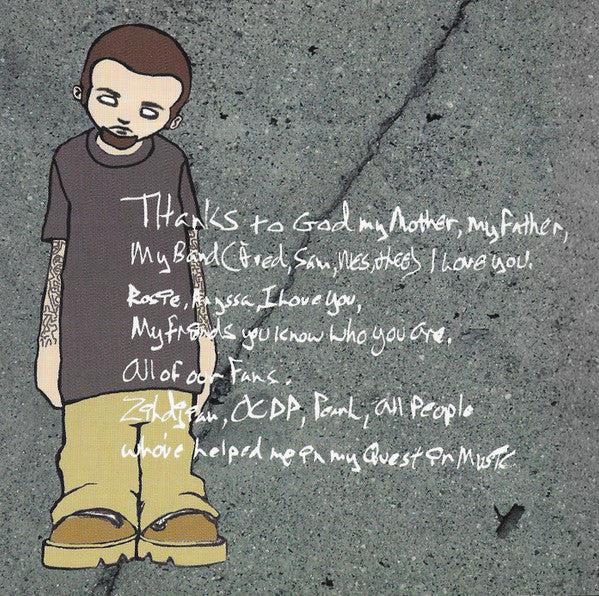 Thanks to God my Mother, my Father,
My Band (Fred, Sam, Wes, ) I Love you.
Rosie, Alyssa, I Love You,
My friends you know who you are.
All of our Fans.
Zildjian, OCDP, Pearl, All People
who've helped me in my Quest in Music